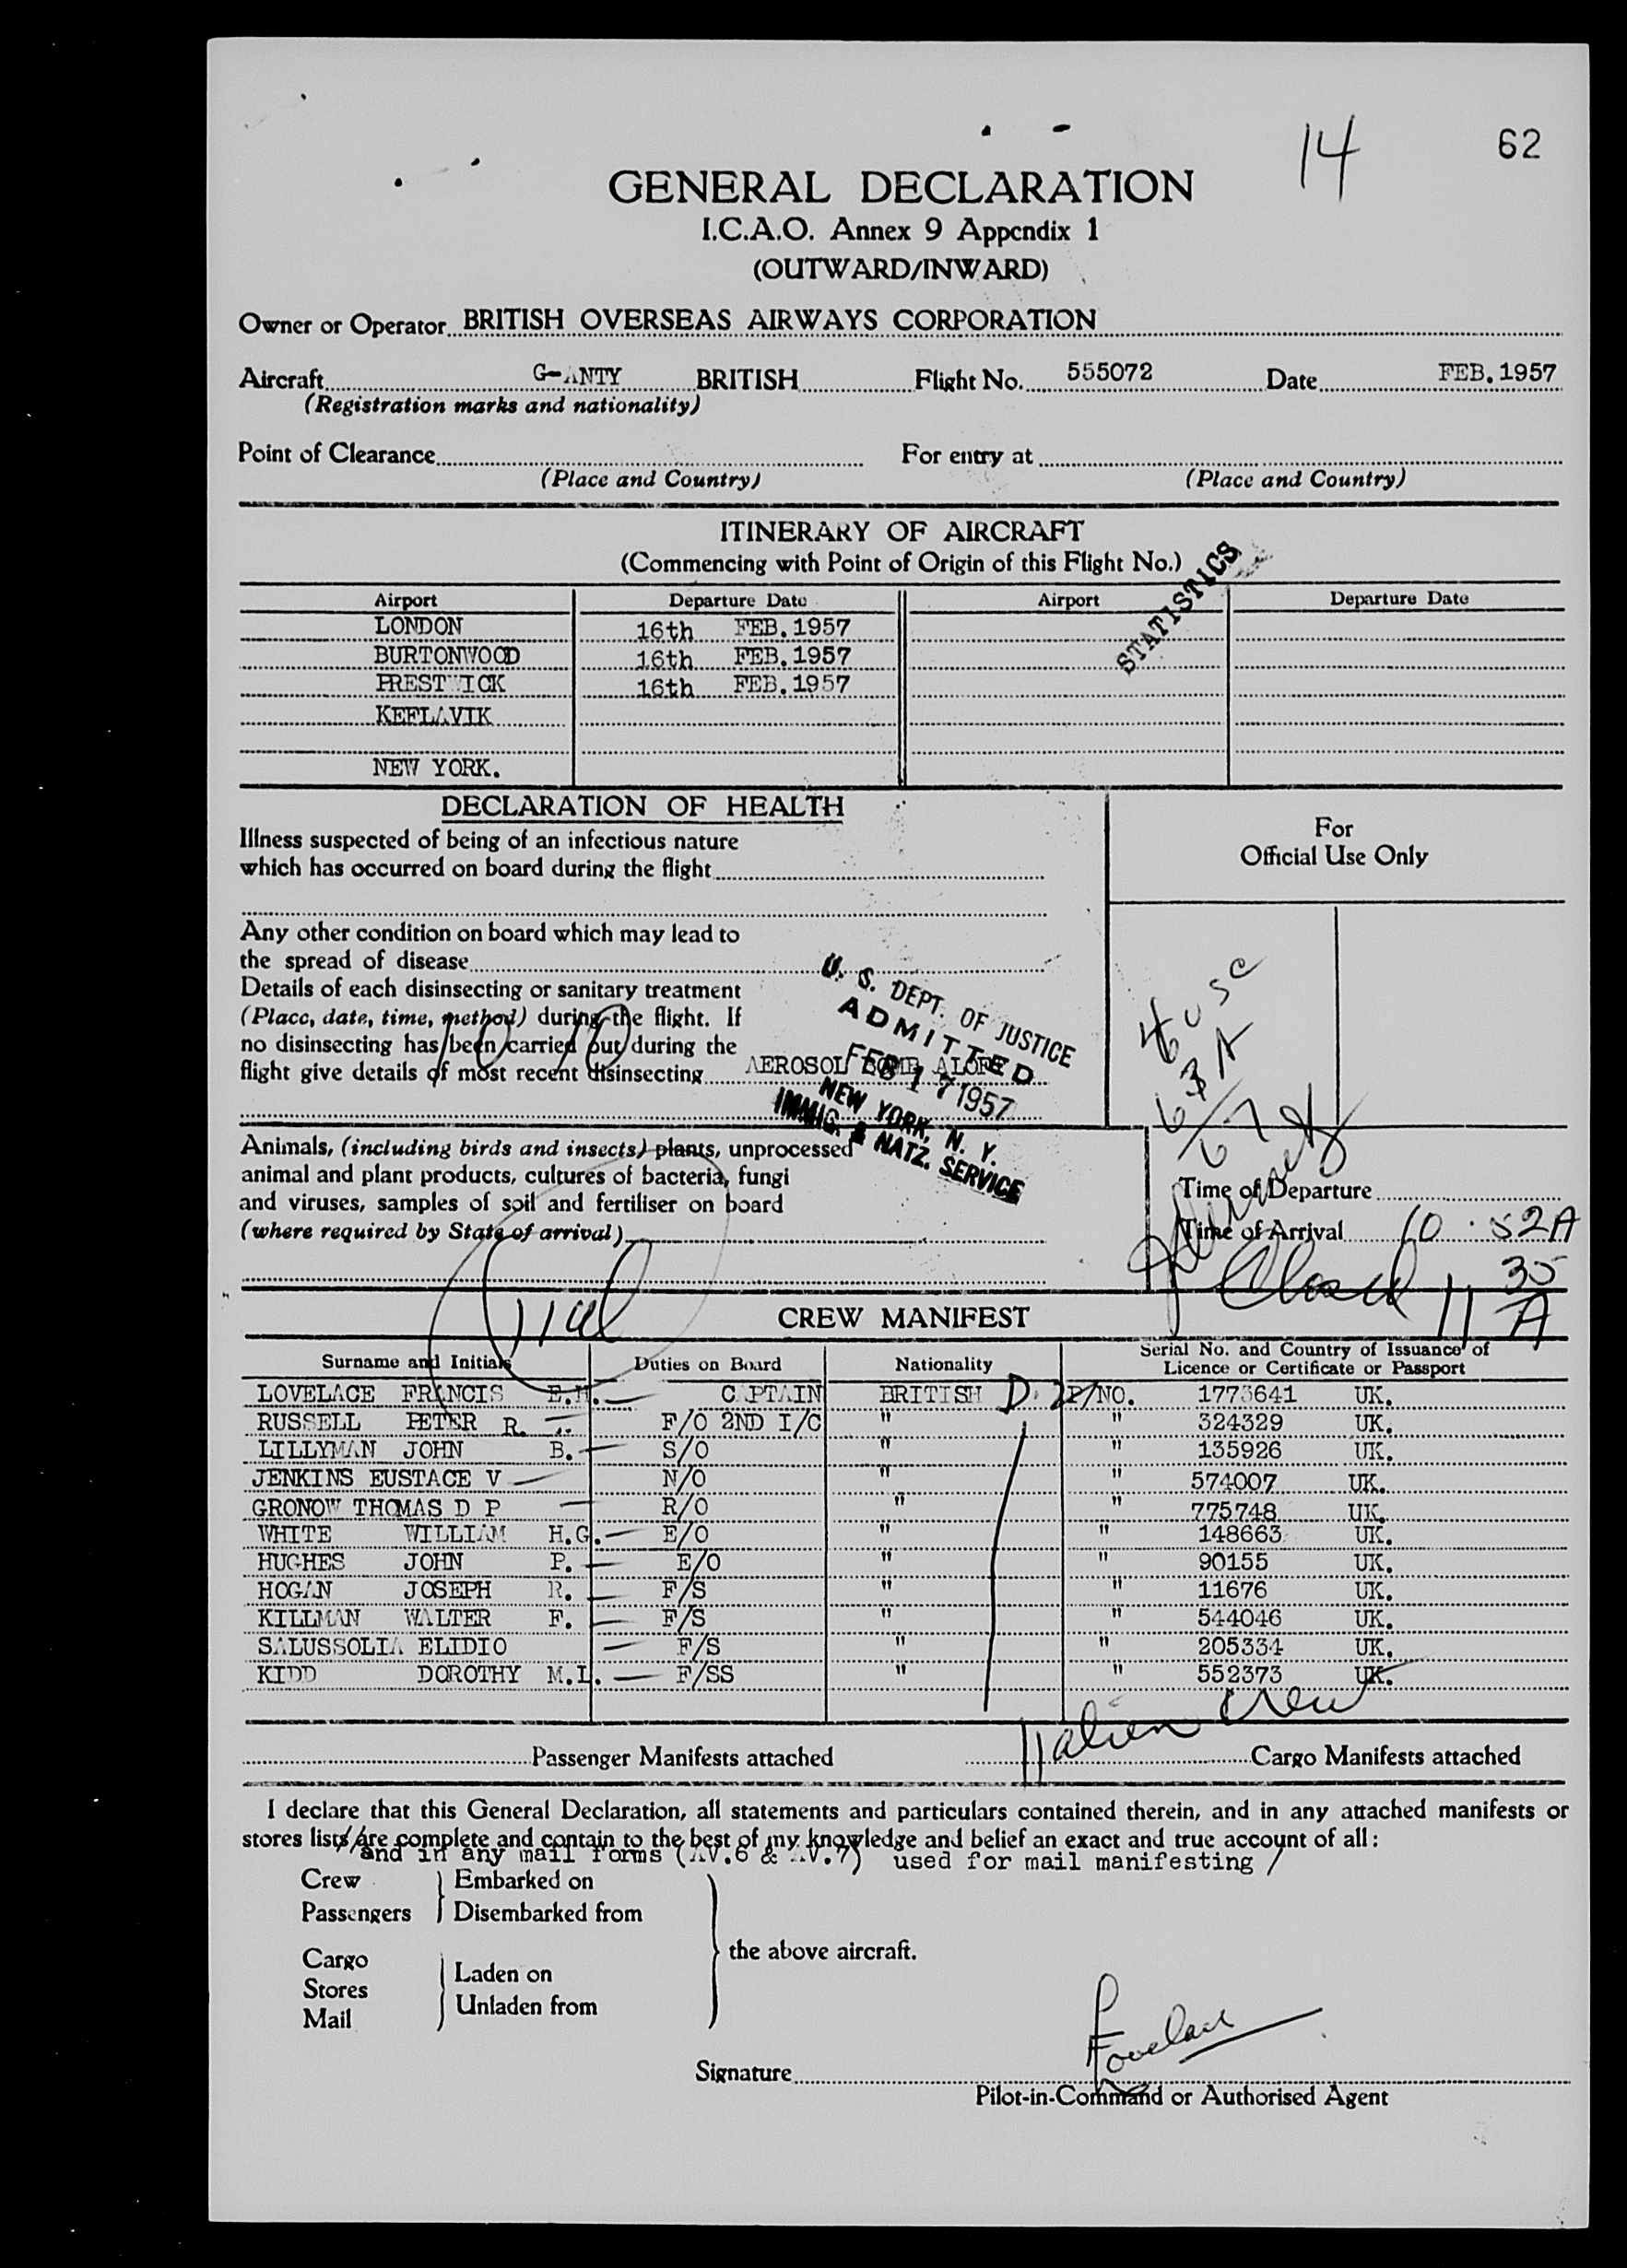 14 62
GENERAL DECLARATION
I.C.A.O. Annex 9 Appendix 1
(OUTWARD/INWARD)
Owner or Operator BRITISH OVERSEAS AIRWAYS CORPORATION
Aircraft G-ANTY BRITISH Flight No. 555072 Date FEB. 1957
(Registration marks and nationality)
Point of Clearance For entry at
(Place and Country) (Place and Country)
ITINERARY OF AIRCRAFT
(Commencing with Point of Origin of this Flight No.)
STATISTICS
Airport Departure Date Airport Departure Date
LONDON 16th FEB. 1957
BURTONWOOD 16th FEB. 1957
PRESTWICK 16th FEB. 1957
KEFLAVIK
NEW YORK.
DECLARATION OF HEALTH
For
Official Use Only
Illness suspected of being of an infectious nature
which has occurred on board during the flight
Any other condition on board which may lead to
the spread of disease
Details of each disinsecting or sanitary treatment
(Place, date, time, method) during the flight. If
no disinsecting has been carried out during the
flight give details of most recent disinsecting AEROSOL BOMB
U. S. DEPT. OF JUSTICE
ADMITTED
FEB 17 1957
NEW YORK, N. Y.
IMMIG. & NATZ. SERVICE
4 USC
63A
67
Animals, (including birds and insects) plants, unprocessed
animal and plant products, cultures of bacteria, fungi
and viruses, samples of soil and fertiliser on board
(where required by State of arrival)
Time of Departure
Time of Arrival 10:52A
Closed 11 35 A
CREW MANIFEST
Surname and Initials Duties on Board Nationality Serial No. and Country of Issuance of
Licence or Certificate or Passport
LOVELACE FRANCIS E.H. CAPTAIN BRITISH P/NO. 1773641 UK.
RUSSELL PETER R. F/O 2ND I/C " " 324329 UK.
LILLYMAN JOHN B. S/O " " 135926 UK.
JENKINS EUSTACE V N/O " " 574007 UK.
GRONOW THOMAS D P R/O " " 775748 UK.
WHITE WILLIAM H.G. E/O " " 148663 UK.
HUGHES JOHN P. E/O " " 90155 UK.
HOGAN JOSEPH R. F/S " " 11676 UK.
KILLMAN WALTER F. F/S " " 544046 UK.
SALUSSOLIA ELIDIO F/S " " 205334 UK.
KIDD DOROTHY M.L. F/SS " " 552373 UK.
11 alien crew
Passenger Manifests attached Cargo Manifests attached
I declare that this General Declaration, all statements and particulars contained therein, and in any attached manifests or
stores lists are complete and contain to the best of my knowledge and belief an exact and true account of all:
/and in any mail forms (AV.6 & AV.7) used for mail manifesting /
Crew Embarked on
Passengers Disembarked from
the above aircraft.
Cargo
Stores Laden on
Mail Unladen from
Signature Lovelace
Pilot-in-Command or Authorised Agent